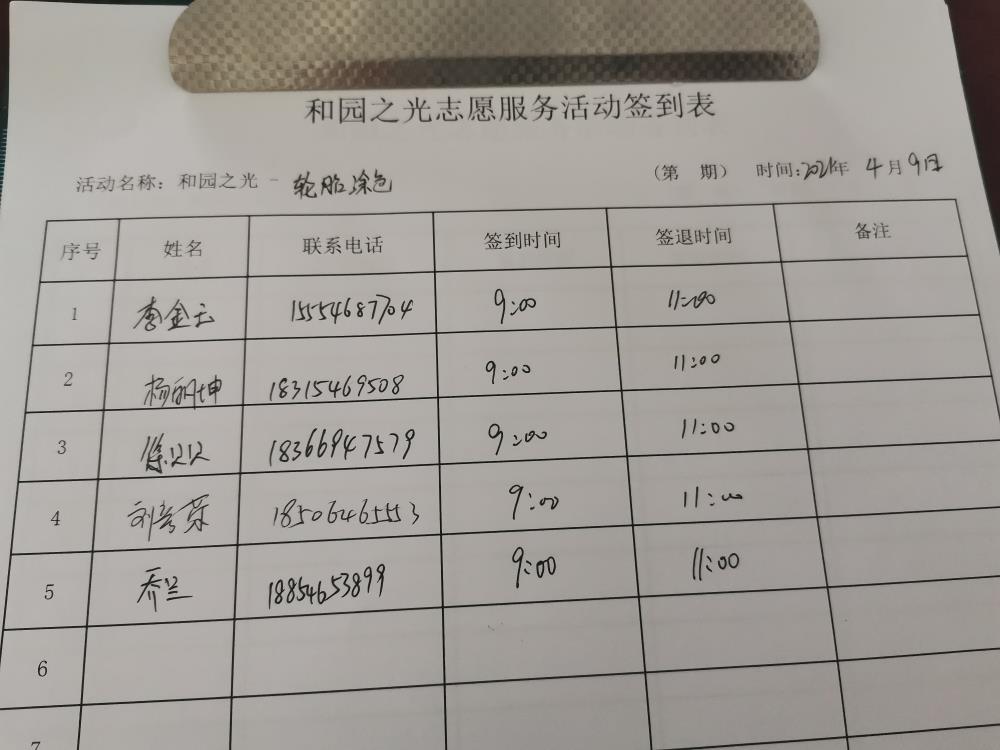 和园之光志愿服务活动签到表
活动名称：和园之光 - 轮胎涂色 （第 期） 时间：2021年 4月9日
序号 姓名 联系电话 签到时间 签退时间 备注
1 李金云 15554687704 9:00 11:00
2 杨丽坤 18315469508 9:00 11:00
3 徐贝贝 18366947579 9:00 11:00
4 刘彦荣 18506465553 9:00 11:00
5 乔兰 18854653899 9:00 11:00
6
7